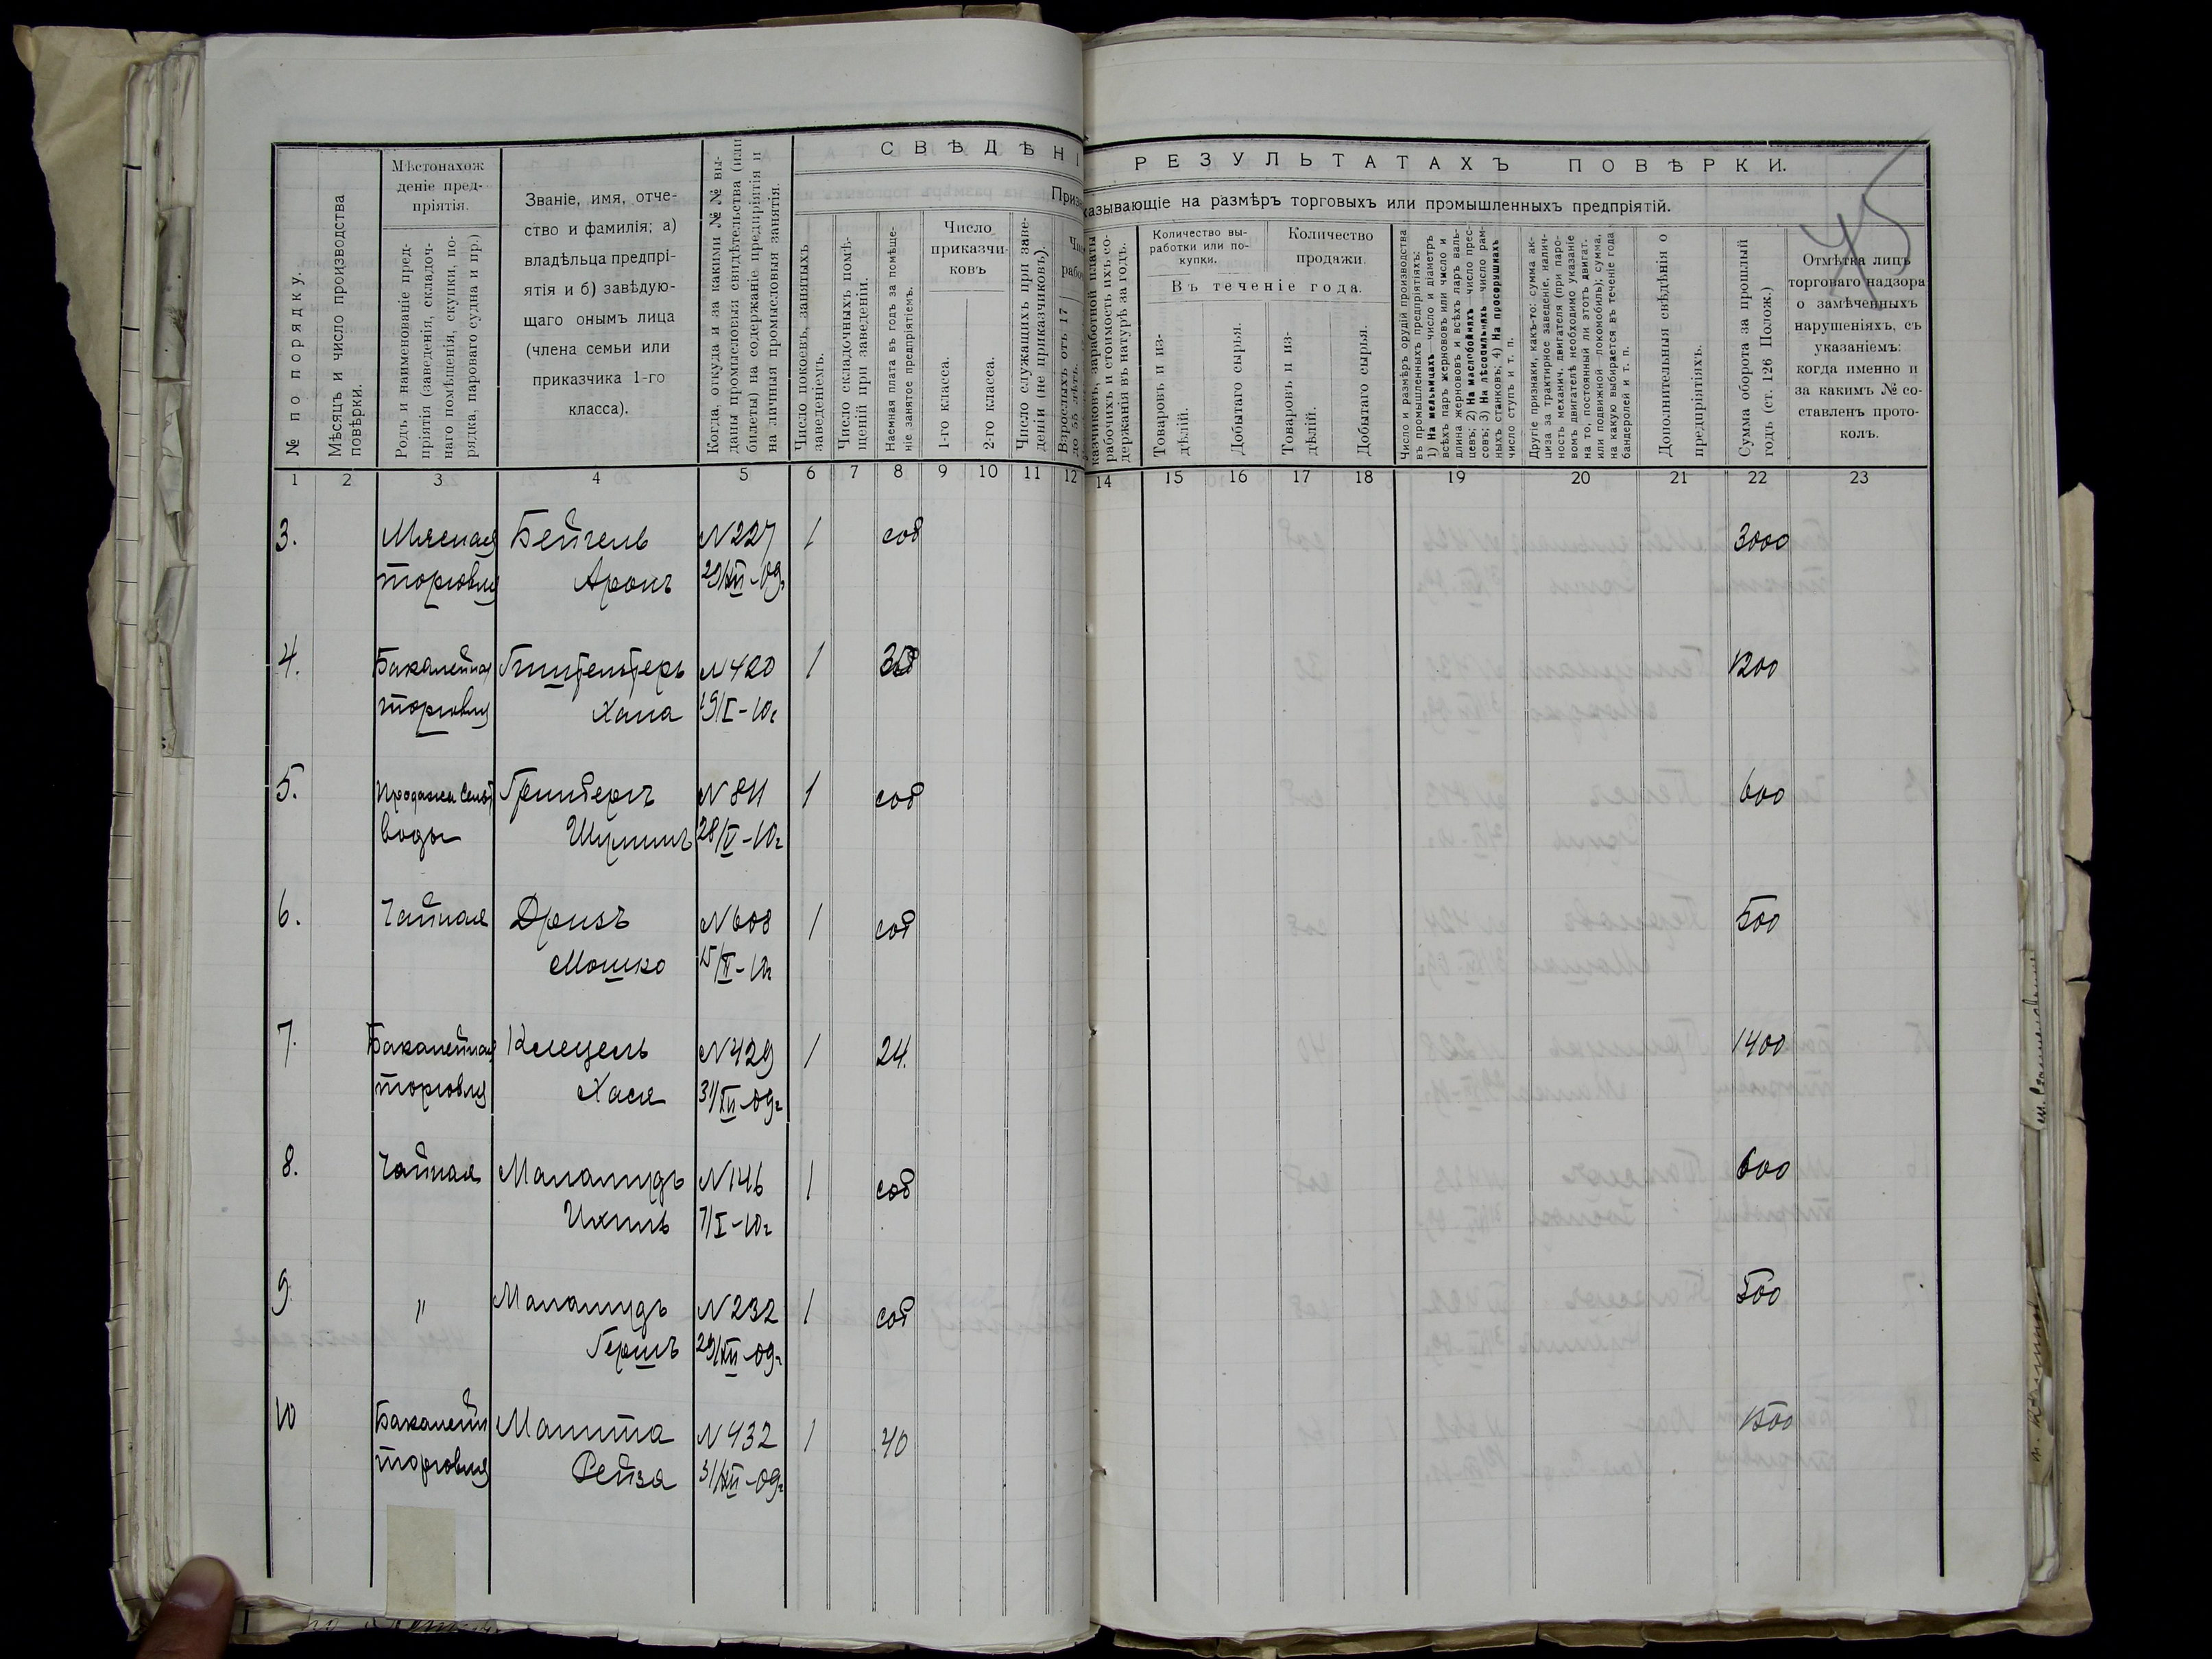 СВѢДѢНІ
РЕЗУЛЬТАТАХЪ ПОВѢРКИ.
45
Призн
казывающіе на размѣръ торговыхъ или промышленныхъ предпріятій.
№ по порядку.
Мѣсяцъ и число производства
повѣрки.
Мѣстонахож
деніе пред-
пріятія.
Родъ и наименованіе пред-
пріятія (заведенія, складоч-
наго помѣщенія, скупки, по-
рядка, пароваго судна и пр.)
Званіе, имя, отче-
ство и фамилія; а)
владѣльца предпрі-
ятія и б) завѣдую-
щаго онымъ лица
(члена семьи или
приказчика 1-го
класса).
Когда, откуда и за какими №№ вы-
даны промысловыя свидѣтельства (или
билеты) на содержаніе предпріятія и
на личныя промысловыя занятія.
Число покоевъ, занятыхъ
заведеніемъ.
Число складочныхъ помѣ-
щеній при заведеніи.
Наемная плата въ годъ за помѣще-
ніе занятое предпріятіемъ.
Число
приказчи-
ковъ
1-го класса.
2-го класса.
Число служащихъ при заве-
деніи (не приказчиковъ).
Взрослыхъ отъ 17
казчиковъ, заработной платы
рабочихъ и стоимость ихъ со-
держанія въ натурѣ за годъ.
Количество вы-
работки или по-
купки.
Количество
продажи.
Въ теченіе года.
Товаровъ и из-
дѣлій.
Добытаго сырья.
Товаровъ и из-
дѣлій.
Добытаго сырья.
Число и размѣръ орудій производства
въ промышленныхъ предпріятіяхъ:
1) На мельницахъ—число и діаметръ
всѣхъ паръ жернововъ или число и
длина жернововъ и всѣхъ паръ валь-
цевъ; 2) На маслобойняхъ—число прес-
совъ; 3) На лѣсопильняхъ—число рам-
ныхъ станковъ; 4) На просорушкахъ
число ступъ и т. п.
Другіе признаки, какъ-то: сумма ак-
циза за трактирное заведеніе, налич-
ность механич. двигателя (при паро-
вомъ двигателѣ необходимо указаніе
на то, постоянный ли этотъ двигат.
или подвижной—локомобиль); сумма,
на какую выбирается въ теченіе года
бандеролей и т. п.
Дополнительныя свѣдѣнія о
предпріятіяхъ.
Сумма оборота за прошлый
годъ (ст. 126 Полож.)
Отмѣтка лицъ
торговаго надзора
о замѣченныхъ
нарушеніяхъ, съ
указаніемъ:
когда именно и
за какимъ № со-
ставленъ прото-
колъ.
1 2 3 4 5 6 7 8 9 10 11 12 14 15 16 17 18 19 20 21 22 23
3. Мясная Бейгель N 227 1 соб 3000
торговля Аронъ 29/XII-09г
4. Бакалейная N 420 1 1200
торговля Хана 19/I-10г
5. Продажа Сельт Гринбергъ N 811 1 соб 600
воды 28/V-10г
6. Чайная Дризъ N 608 1 соб 500
Мошко 15/II-10г
7. Бакалейная Клецель N 429 1 24. 1400
торговля Хася 31/XII-09г
8. Чайная Маламудъ N 146 1 соб 600
Ихиль 7/I-10г
9 " Маламудъ N 232 1 соб 500
Гершъ 29/XII-09г
10 Бакалейн Манита N 432 1 40 1500
торговля Рейза 31/XII-09г